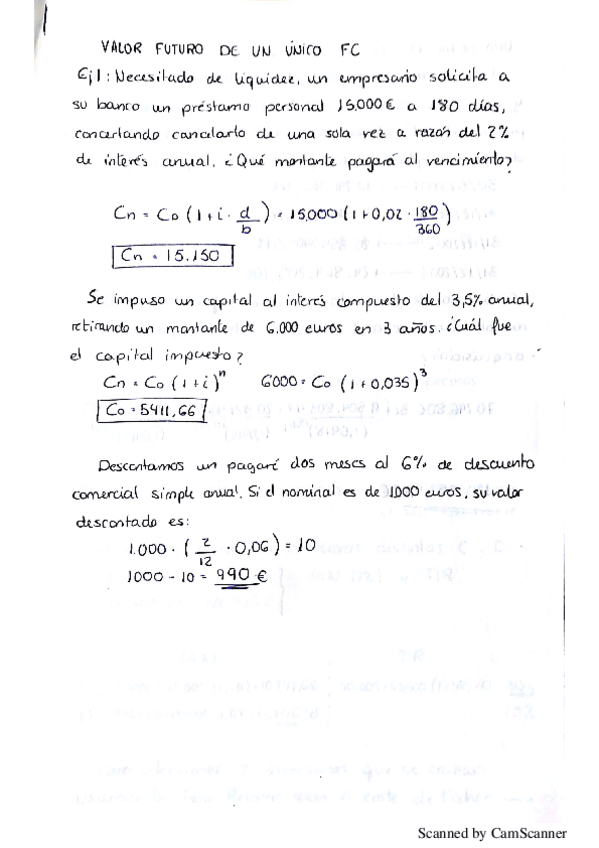 VALOR FUTURO DE UN ÚNICO FC
Ej1: Necesitado de liquidez, un empresario solicita a
su banco un préstamo personal 15,000 € a 180 días,
concertando cancelarlo de una sola vez a razón del 2%
de interés anual. ¿Qué montante pagará al vencimiento?
Cn = Co (1+i · d/b) = 15,000 (1+0,02 · 180/360)
Cn = 15.150
Se impuso un capital al interés compuesto del 3,5% anual,
retirando un montante de 6.000 euros en 3 años. ¿Cuál fue
el capital impuesto?
Cn = Co (1+i)^n 6000 = Co (1+0,035)^3
Co = 5411,66
Descontamos un pagaré dos meses al 6% de descuento
comercial simple anual. Si el nominal es de 1.000 euros, su valor
descontado es:
1.000 · (2/12 · 0,06) = 10
1000 - 10 = 990 €
Scanned by CamScanner